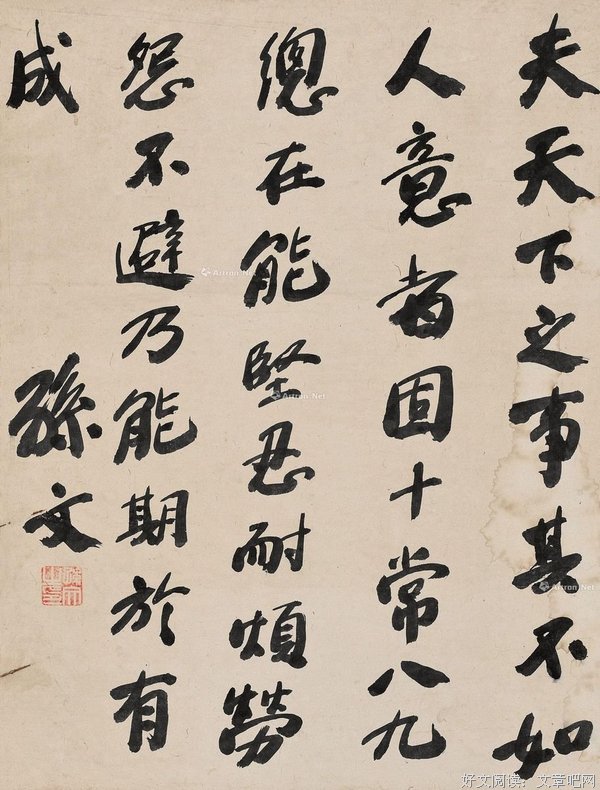 夫天下之事其不如
人意者固十常八九
總在能堅忍耐煩勞
怨不避乃能期於有
成
孫文
Artron.Net
Artron.Net
Artron.Net
好文阅读：文章吧网